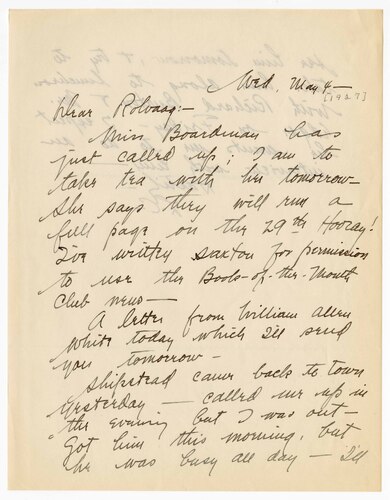 Wed, May 4 —
[1927]
Dear Rolvaag:—
Miss Boardman has
just called up; I am to
take tea with her tomorrow —
she says they will run a
full page on the 29th Hooray!
I've written Saxton for permission
to use the Book-of-the-Month
Club news —
A letter from William Allen
White today which I'll send
you tomorrow —
Shipstead came back to town
yesterday — called me up in
the evening but I was out —
Got him this morning, but
he was busy all day — I'll